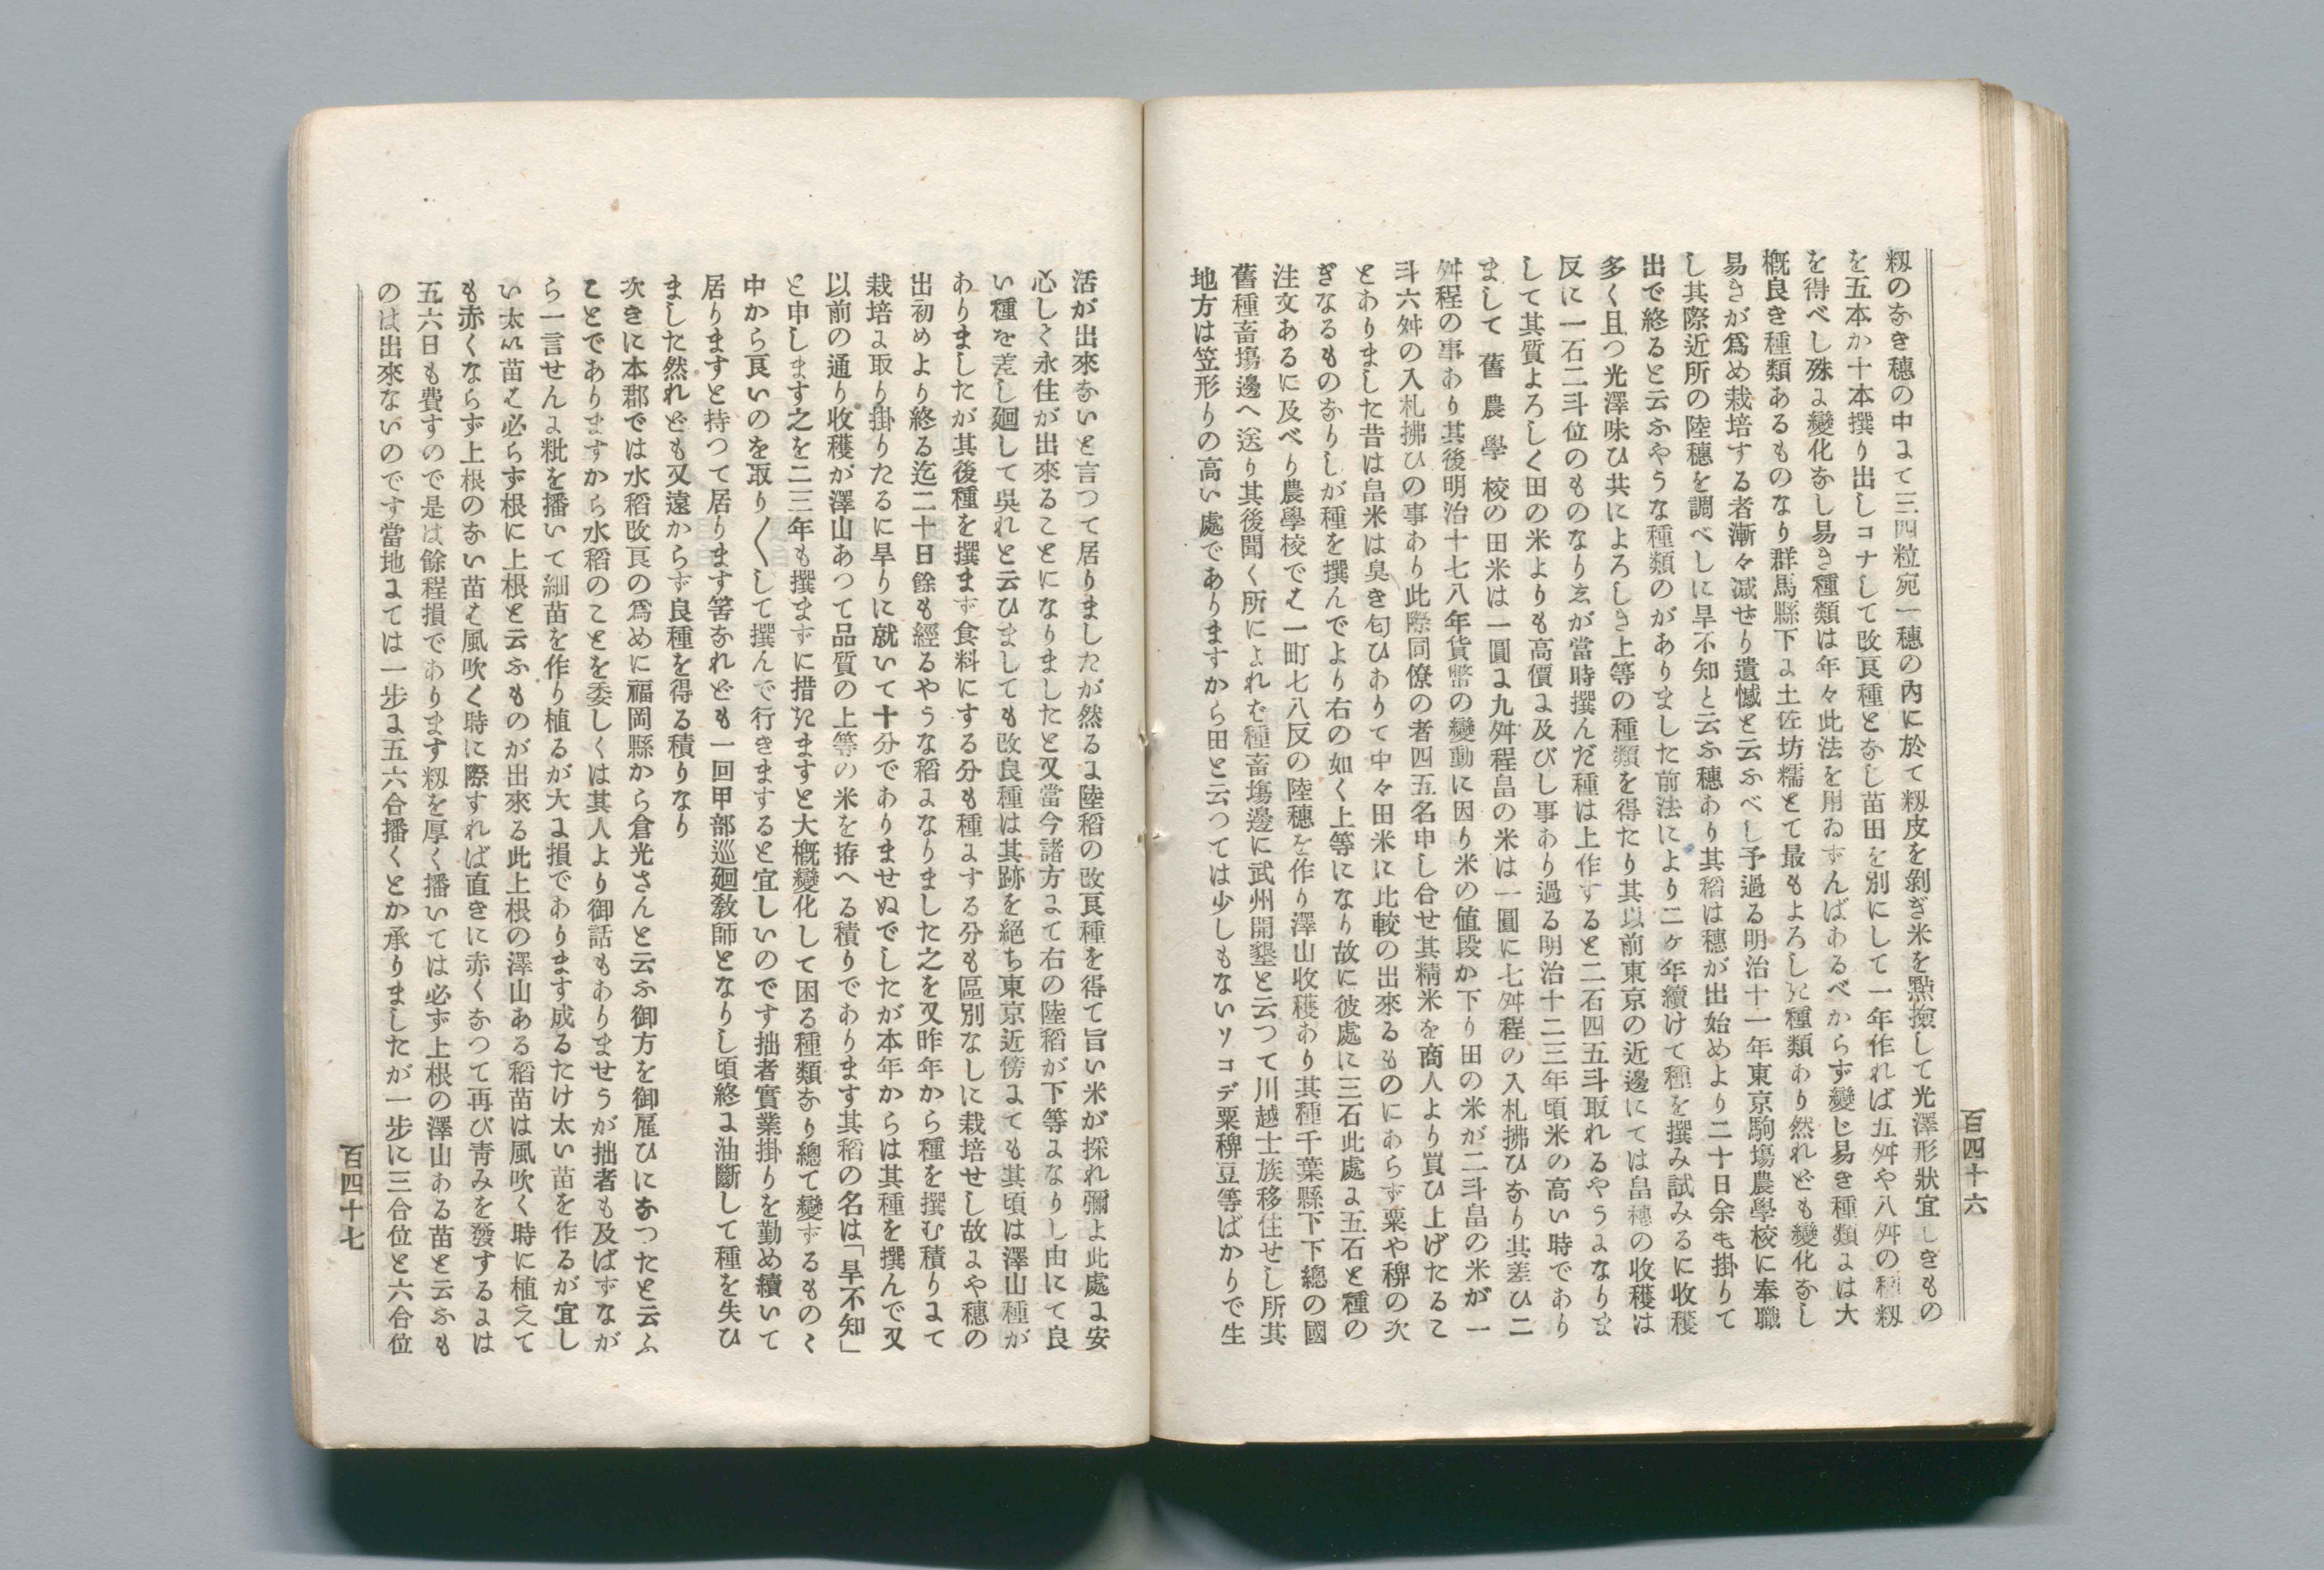 百四十六
籾のなき穂の中にて三四粒宛一穂の內に於て籾皮を剝ぎ米を㸃撿して光澤形狀宜しきもの
を五本か十本撰り出しコナして改良種となし苗田を別にして一年作れば五舛や八舛の種籾
を得べし殊に變化なし易き種類は年々此法を用ゐずんばあるべからず變じ易き種類には大
槪良き種類あるものなり群馬縣下に土佐坊糯とて最もよろしき種類あり然れども變化なし
易きが爲め栽培する者漸々减せり遺憾と云ふべし予過る明治十一年東京駒塲農學校に奉職
し其際近所の陸穂を調べしに旱不知と云ふ穂あり其稻は穗が出始めより二十日余も掛りて
出で終ると云ふやうな種類のがありました前法により二ヶ年續けて種を撰み試みるに收穫
多く且つ光澤味ひ共によろしき上等の種類を得たり其以前東京の近邊にては畠穗の收穫は
反に一石二斗位のものなり玄が當時撰んだ種は上作すると二石四五斗取れるやうになりま
して其質よろしく田の米よりも高價に及びし事あり過る明治十二三年頃米の高い時であり
まして舊農學校の田米は一圓に九舛程畠の米は一圓に七舛程の入札拂ひなり其差ひ二
舛程の事あり其後明治十七八年貨幣の變動に因り米の値段か下り田の米が二斗畠の米が一
斗六舛の入札拂ひの事あり此際同僚の者四五名申し合せ其精米を商人より買ひ上げたるこ
とありました昔は畠米は臭き匂ひありて中々田米に比較の出來るものにあらず粟や稗の次
ぎなるものなりしが種を撰んでより右の如く上等になり故に彼處に三石此處に五石と種の
注文あるに及べり農學校では一町七八反の陸穗を作り澤山收穫あり其種千葉縣下下總の國
舊種畜塲邊へ送り其後聞く所によれば種畜塲邊に武州開墾と云つて川越士族移住せし所其
地方は笠形りの高い處でありますから田と云つては少しもないソコデ粟稗豆等ばかりで生
活が出來ないと言つて居りましたが然るに陸稻の改良種を得て旨い米が採れ彌よ此處に安
心しく永住が出來ることになりましたと又當今諸方にて右の陸稻が下等になりし由にて良
い種を差し廻して吳れと云ひましても改良種は其跡を絕ち東京近傍にても其頃は澤山種が
ありましたが其後種を撰まず食料にする分も種にする分も區別なしに栽培せし故にや穗の
出初めより終る迄二十日餘も經るやうな稻になりました之を又昨年から種を撰む積りにて
栽培に取り掛りたるに旱りに就いて十分でありませぬでしたが本年からは其種を撰んで又
以前の通り收穫が澤山あつて品質の上等の米を拵へる積りであります其稻の名は「旱不知」
と申します之を二三年も撰まずに措きますと大槪變化して困る種類なり總て變ずるものく
中から良いのを取り〱して撰んで行きまするとく宜しいのです拙者實業掛りを勤め續いて
居りますと持つて居ります筈なれども一回甲部巡廻敎師となりし頃終に油斷して種を失ひ
ました然れども又遠からず良種を得る積りなり
次きに本郡では水稻改良の爲めに福岡縣から倉光さんと云ふ御方を御雇ひになつたと云ふ
ことでありますから水稻のことを委しくは其人より御話もありませうが拙者も及ばずなが
ら一言せんに籾を播いて細苗を作り植るが大に損であります成るたけ太い苗を作るが宜し
い太い苗は必らず根に上根と云ふものが出來る此上根の澤山ある稻苗は風吹く時に植えて
も赤くならず上根のない苗は風吹く時に際すれば直きに赤くなつて再び靑みを發するには
五六日も費すので是は餘程損であります籾を厚く播いては必ず上根の澤山ある苗と云ふも
のは出來ないのです當地にては一步に五六合播くとか承りましたが一步に三合位と六合位
百四十七